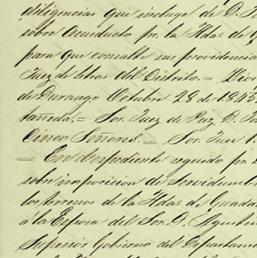 diligencias que incluye de D. J
sobre Acueducto pr. la Hda. de G
para que consulte su providencia
Juez de letras del Distrito. =
de Durango Octubre 28 de 1843.
tañeda. = Sor. Juez de Paz D.
Cinco Señores. = Sor. Juez
= En el espediente seguido pr.
sobre imposicion de servidumb
los terrenos de la Hda. de Guada
á la Esposa del Sor. D.
Superior Gobierno del Departam